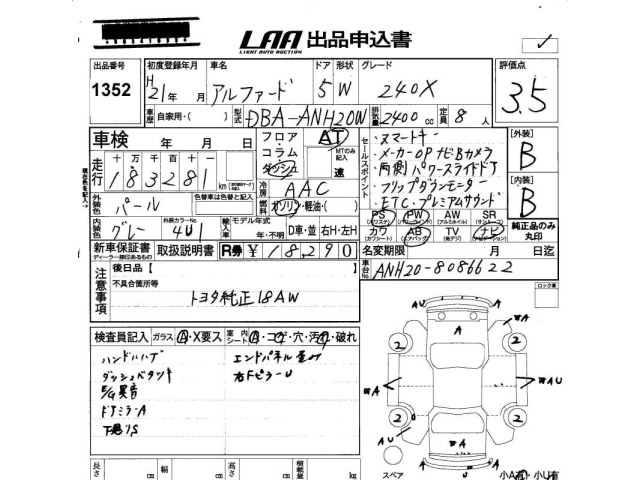 LAA 出品申込書
LIGHT AUTO AUCTION
出品番号
1352
初度登録年月 車名 ドア 形状 グレード
H21年 月 アルファード 5 W 240X
評価点
3.5
車歴 自家用・( ) 型式 DBA-ANH20W 排気量 2400 cc 定員 8 人
車検 年 月 日
フロア AT
コラム MTのみ記入
ダッシュ 速
セールスポイント
・スマートキー
・メーカーOPナビBカメラ
・両側パワースライドドア
・フリップダウンモニター
・ETC・プレミアムサウンド
[外装]
B
[内装]
B
走行 十万 万 千 百 十 一
183281 km
冷房 AAC
燃料 ガソリン・軽油・( )
外装色 パール
色替車は色替と記入
内装色 グレー
外装カラーNo. 4U1
輸入車 モデル年式 年・不明 D車・並 右H・左H
PS PW AW SR
カワ AB TV ナビ
純正品のみ丸印
新車保証書 取扱説明書 R券 ¥18,290
ディーラー印のあるもの
名変期限 月 日迄
車台No. ANH20-8086622
注意事項
後日品[ ]
不具合箇所等
トヨタ純正18AW
ロック車
検査員記入 ガラス A・X要ス 室内 シート A・コゲ・穴・汚れ・破れ
ハンドルハゲ エンドパネル歪み
右FピラーU
E/G異音
ドアミラーA
下廻りS
A
A
A
A
A U
2
2
2
2
A
U
スペア
小A有・小U有
長さ cm 幅 cm 高さ cm 積載量 kg